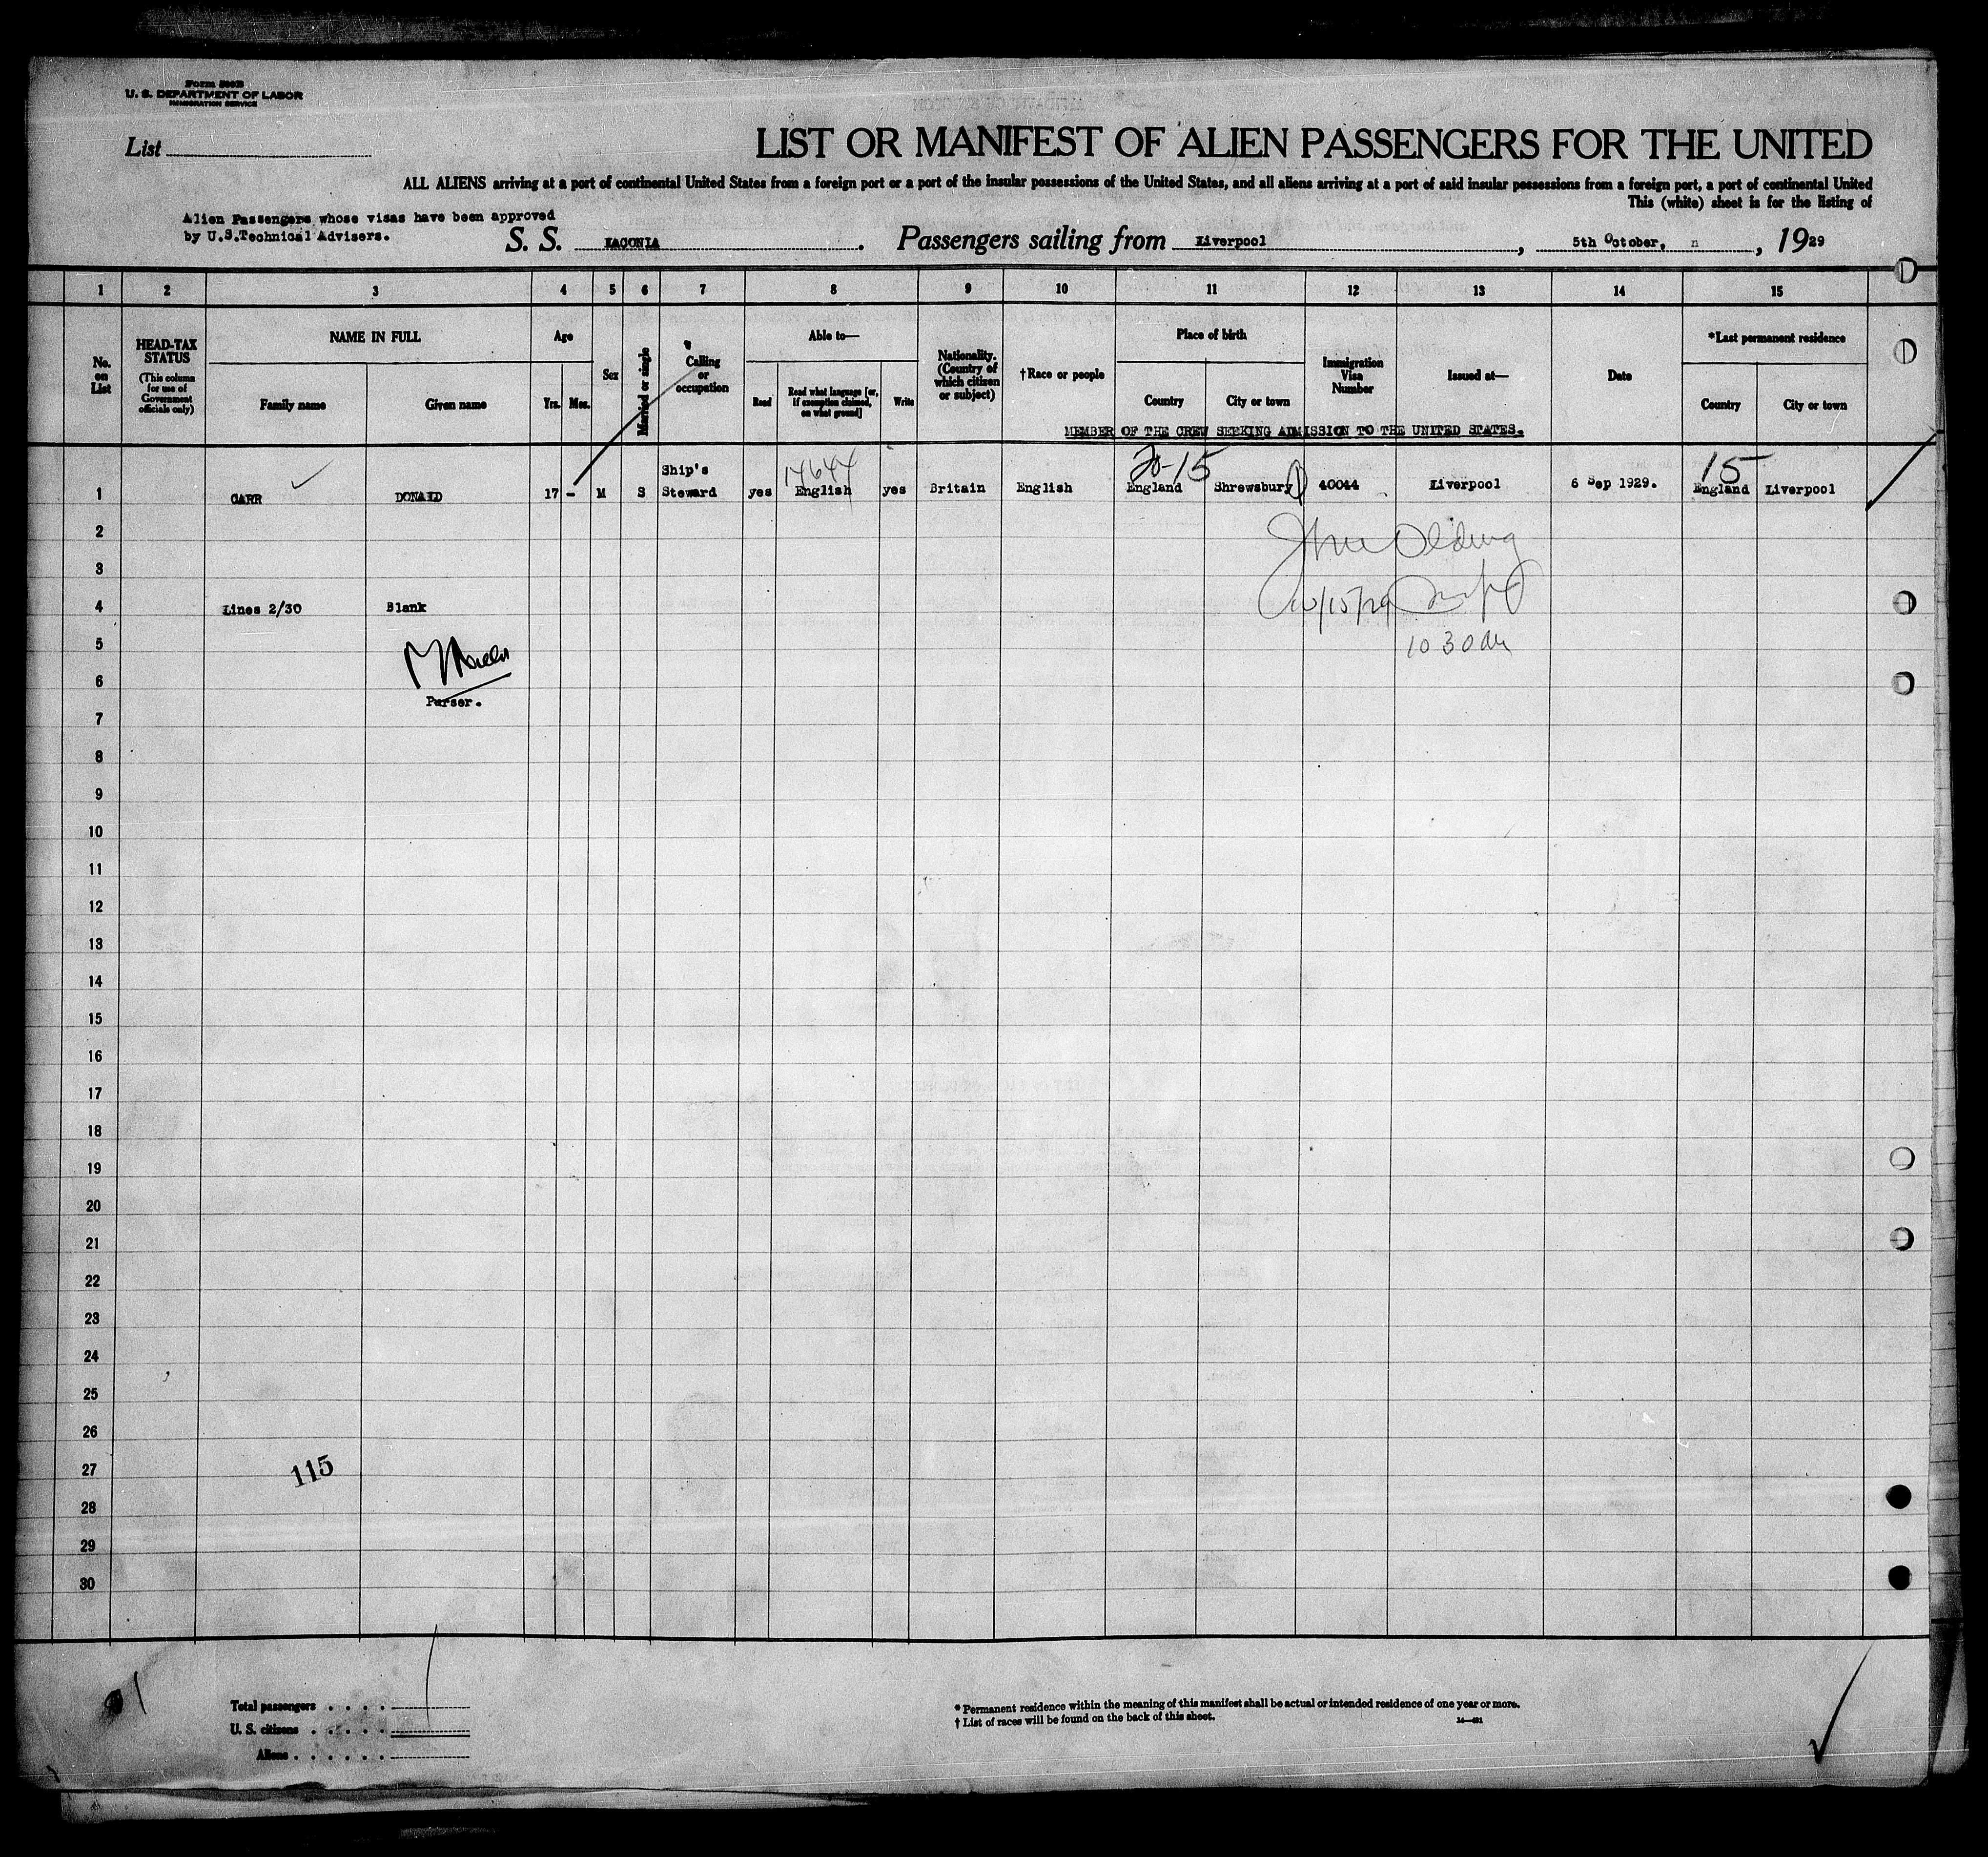 Form 500B
U. S. DEPARTMENT OF LABOR
IMMIGRATION SERVICE
List
LIST OR MANIFEST OF ALIEN PASSENGERS FOR THE UNITED
ALL ALIENS arriving at a port of continental United States from a foreign port or a port of the insular possessions of the United States, and all aliens arriving at a port of said insular possessions from a foreign port, a port of continental United
This (white) sheet is for the listing of
Alien Passengers whose visas have been approved
by U.S.Technical Advisers.
S. S. LACONIA. Passengers sailing from Liverpool, 5th October, 1929
1 2 3 4 5 6 7 8 9 10 11 12 13 14 15
No. on List
HEAD-TAX STATUS (This column for use of Government officials only)
NAME IN FULL
Family name Given name
Age
Yrs. Mos.
Sex
Married or single
Calling or occupation
Able to—
Read Read what language [or, if exemption claimed, on what ground] Write
Nationality. (Country of which citizen or subject)
†Race or people
Place of birth
Country City or town
Immigration Visa Number
Issued at—
Date
*Last permanent residence
Country City or town
MEMBER OF THE CREW SEEKING ADMISSION TO THE UNITED STATES.
20-15 15
1 CARR DONALD 17 - M S Ship's Steward yes English yes Britain English England Shrewsbury 40044 Liverpool 6 Sep 1929. England Liverpool
2
3
4 Lines 2/30 Blank
10/15/29
5
10 30 am
6
Purser.
7
8
9
10
11
12
13
14
15
16
17
18
19
20
21
22
23
24
25
26
27 115
28
29
30
Total passengers . . . .
U. S. citizens . . . . .
Aliens . . . . . .
* Permanent residence within the meaning of this manifest shall be actual or intended residence of one year or more.
† List of races will be found on the back of this sheet.